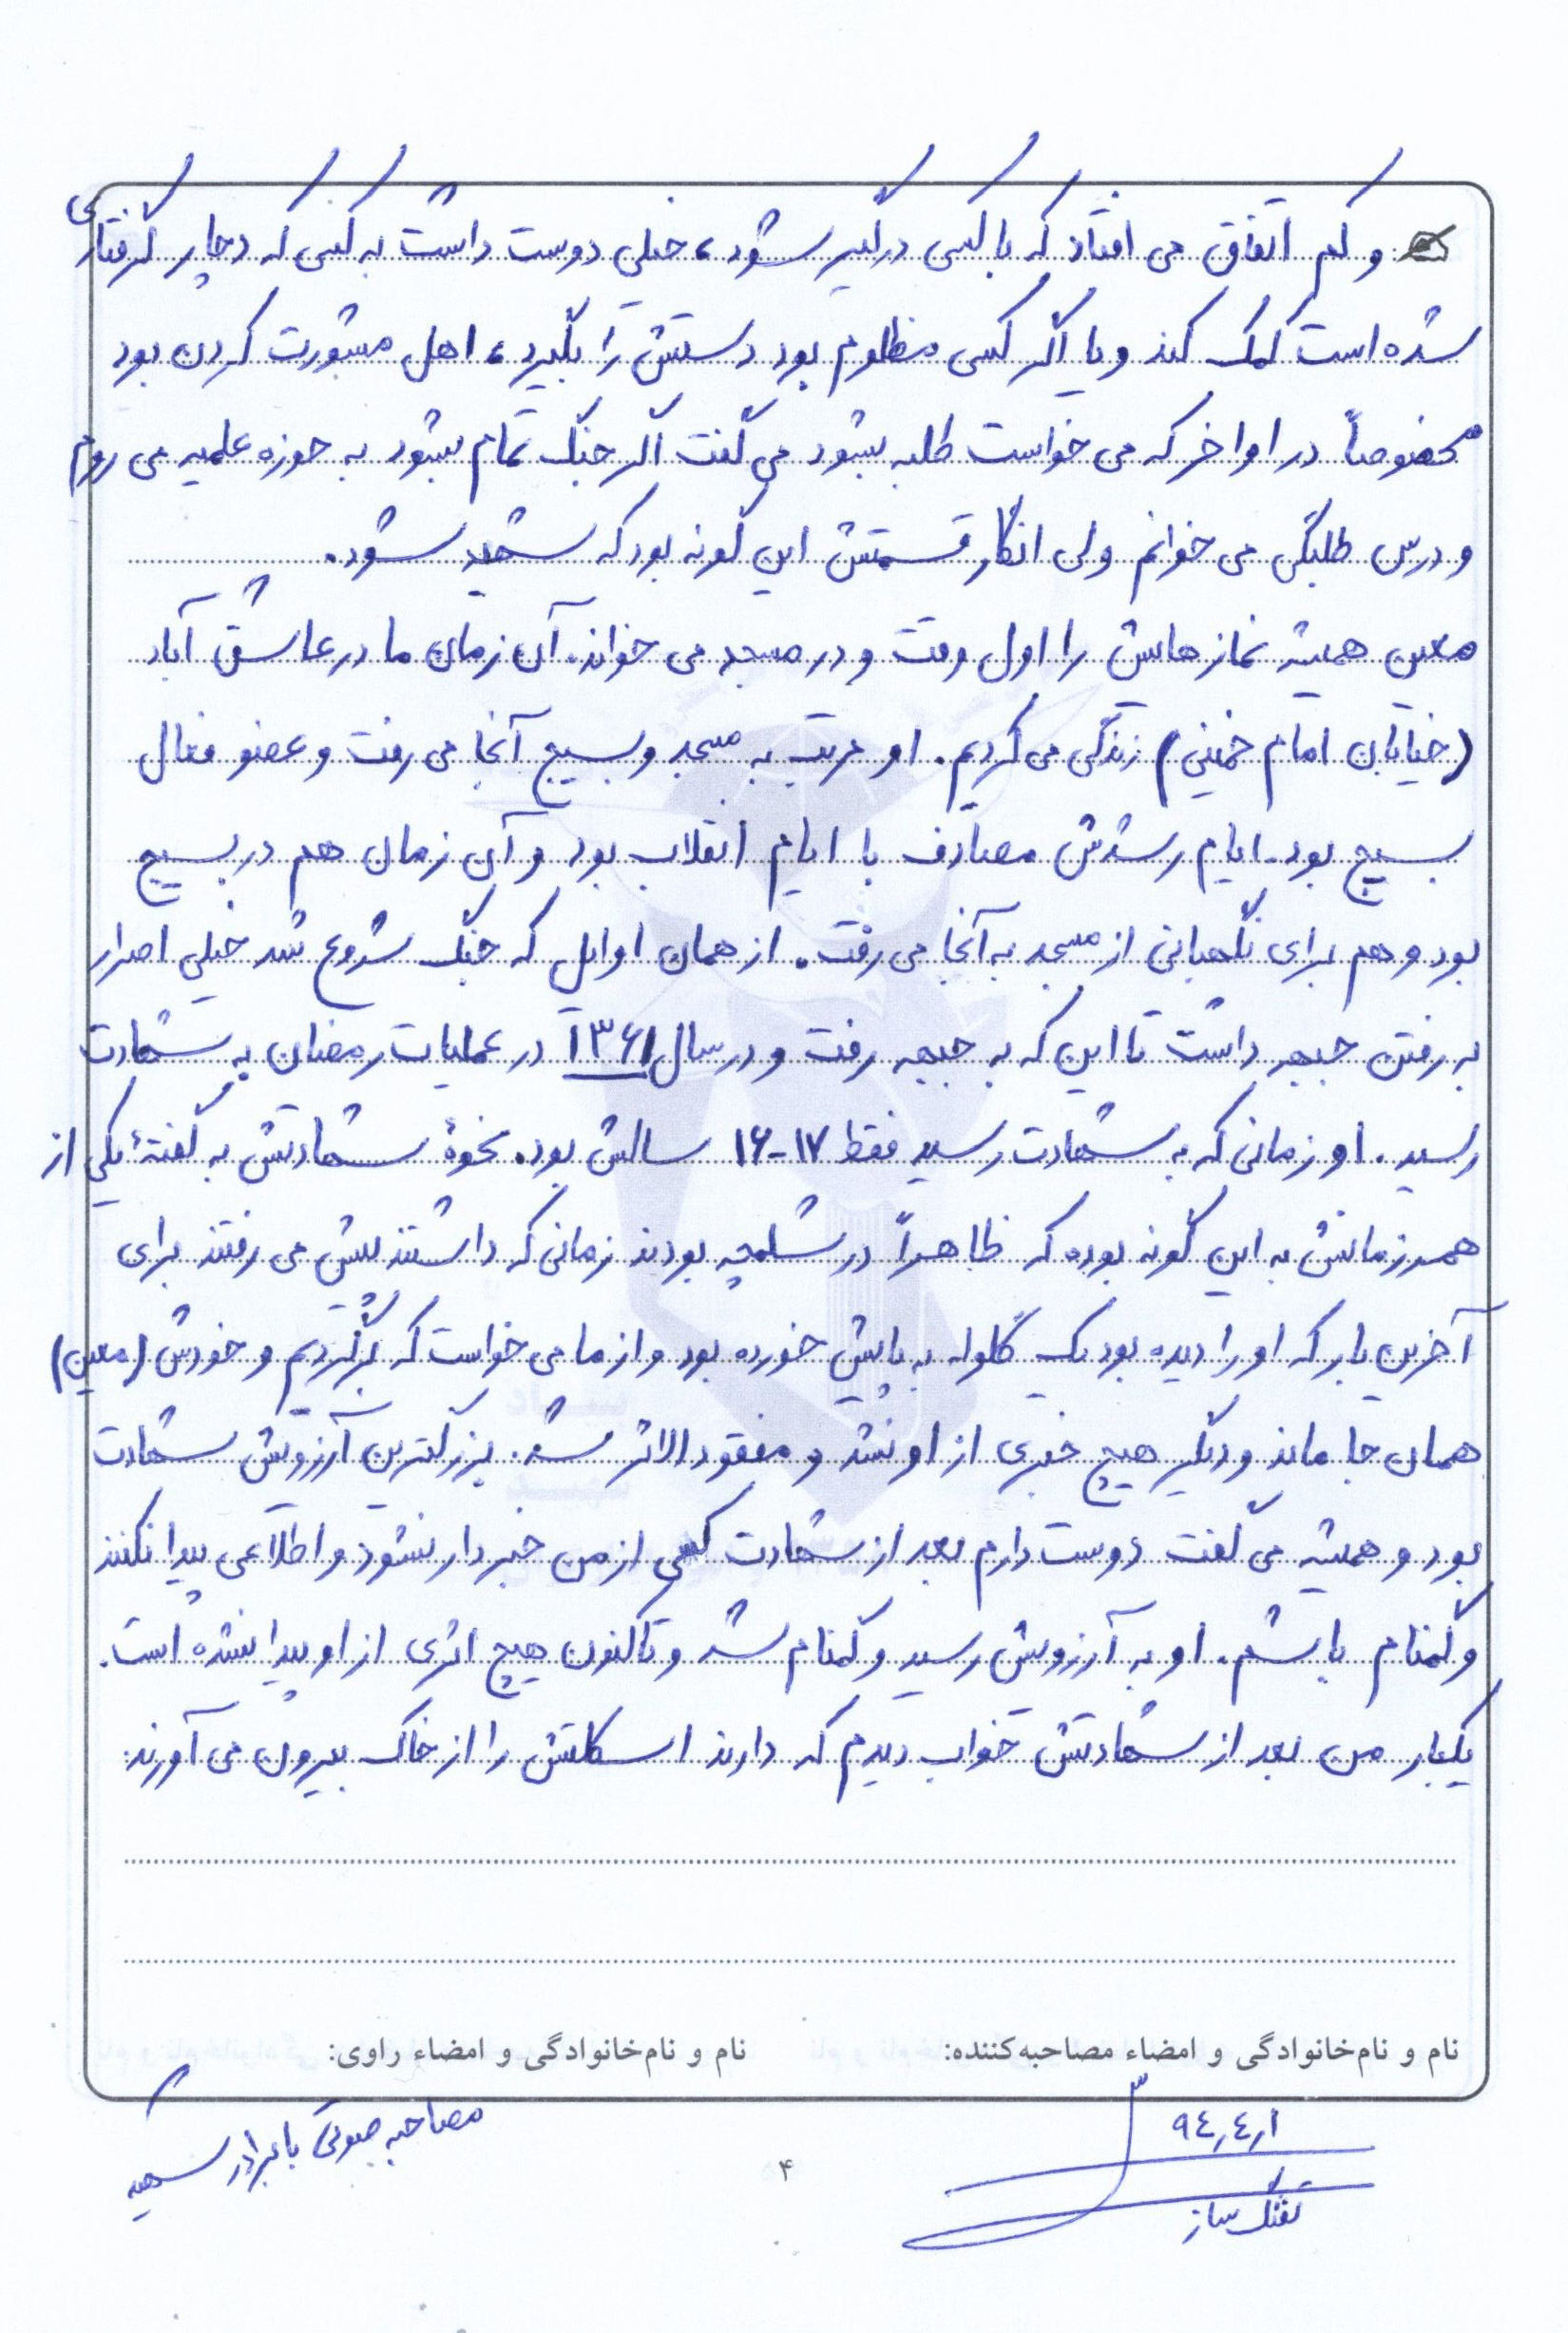 و کم اتفاق می افتاد که با کسی درگیر شود، خیلی دوست داشت به کسی که دچار گرفتاری
شده است کمک کند و یا اگر کسی مظلوم بود دستش را بگیرد، اهل مشورت کردن بود
مخصوصاً در اواخر که می خواست طلبه بشود می گفت اگر جنگ تمام بشود به حوزه علمیه می روم
و درس طلبگی می خوانم ولی انگار قسمتش این گونه بود که شهید شود.
معین همیشه نمازهایش را اول وقت و در مسجد می خواند. آن زمان ما در عاشق آباد
(خیابان امام خمینی) زندگی می کردیم. او مرتب به مسجد و بسیج آنجا می رفت و عضو فعال
بسیج بود. ایام رشدش مصادف با ایام انقلاب بود و آن زمان هم در بسیج
بود و هم برای نگهبانی از مسجد به آنجا می رفت. از همان اوایل که جنگ شروع شد خیلی اصرار
به رفتن جبهه داشت تا این که به جبهه رفت و در سال ۱۳۶۱ در عملیات رمضان به شهادت
رسید. او زمانی که به شهادت رسید فقط ۱۷-۱۶ سالش بود. نحوهٔ شهادتش به گفتهٔ یکی از
همرزمانش به این گونه بوده که ظاهراً در شلمچه بودند زمانی که داشتند پیش می رفتند برای
آخرین بار که او را دیده بود یک گلوله به پایش خورده بود و از ما می خواست که برگردیم و خودش (معین)
همان جا ماند و دیگر هیچ خبری از او نشد و مفقودالاثر شد. بزرگترین آرزویش شهادت
بود و همیشه می گفت دوست دارم بعد از شهادت کسی از من خبردار نشود و اطلاعی پیدا نکنند
و گمنام باشم. او به آرزویش رسید و گمنام شد و تاکنون هیچ اثری از او پیدا نشده است.
یکبار من بعد از شهادتش خواب دیدم که دارند اسکلتش را از خاک بیرون می آورند.
نام و نام‌خانوادگی و امضاء مصاحبه‌کننده: نام و نام‌خانوادگی و امضاء راوی:
۹٤٫٤٫۱ مصاحبه صوتی با برادر شهید
تفنگ ساز
۴